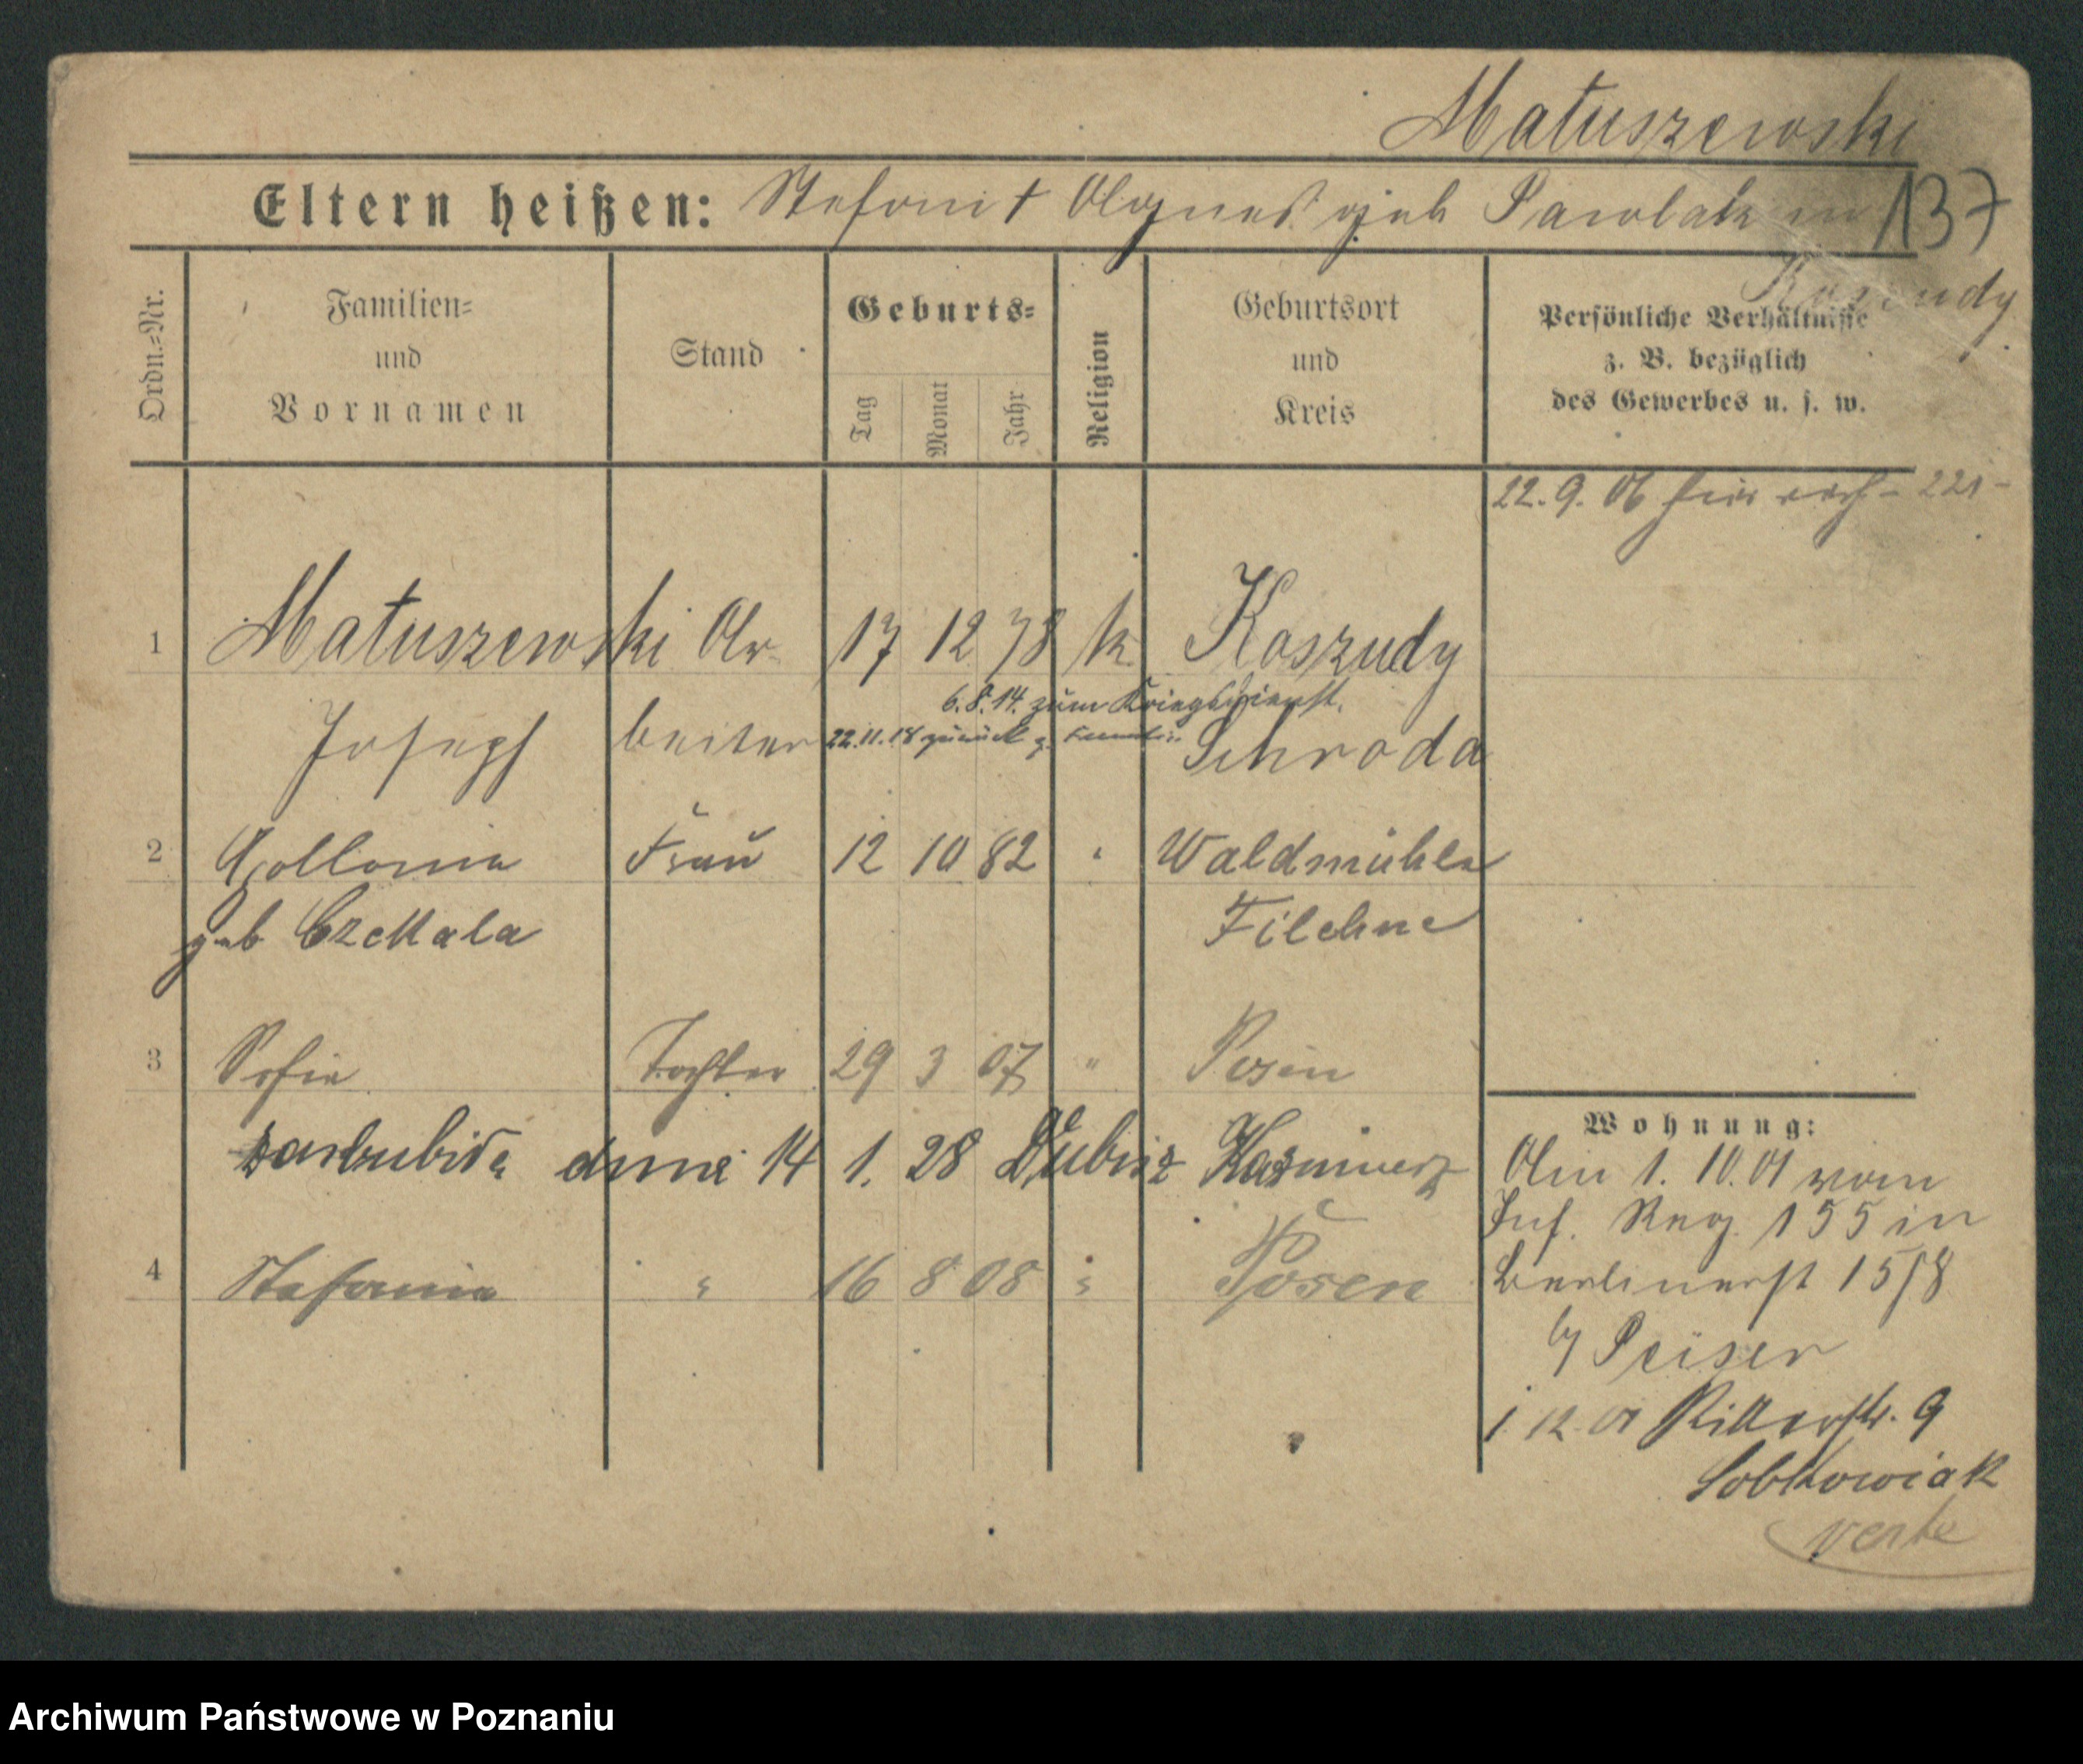 Matuszewski
Eltern heißen: Stefan u + Agnes geb Pawlak in 137
Koszudy
Ordn.-Nr.
Familien- und Vornamen
Stand
Geburts-
Tag Monat Jahr
Religion
Geburtsort und Kreis
Persönliche Verhältnisse
z. B. bezüglich
des Gewerbes u. s. w.
22. 9. 06 - 221 -
1 Matuszewski Ar 17 12 78 k. Koszudy
6.8.14. zum Kriegsdienst.
Joseph beiter 22.11.18 zurück z. Familie Schroda
2 Apollonia Frau 12 10 82 " Waldmühle
geb Czekala Filehne
3 Sofie Tochter 29 3 07 " Posen
zaślubiła dnia 14 1. 28 Dubisz Kazimierz
4 Stefania " 16 8 08 " Posen
Wohnung:
Am 1. 10. 01 vom
Inf. Reg. 155 in
Berlinerst 15/8
b/ Peiser
1 12 01 Ritterstr. 9
Sobkowiak
verte
Archiwum Państwowe w Poznaniu